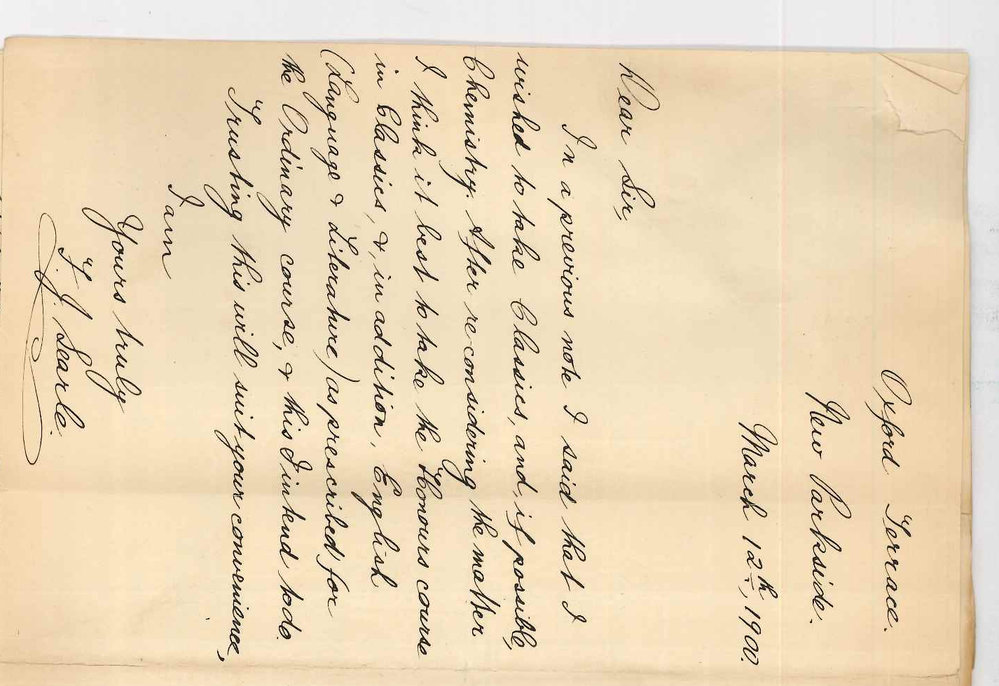 Oxford Terrace.
New Parkside.
March 12th, 1900.
Dear Sir,
In a previous note I said that I
wished to take Classics, and, if possible,
Chemistry. After re-considering the matter
I think it best to take the Honours course
in Classics, &, in addition, English
(Language & Literature) as prescribed for
the Ordinary course, & this I intend to do.
Trusting this will suit your convenience,
I am
Yours truly
J. Searle.